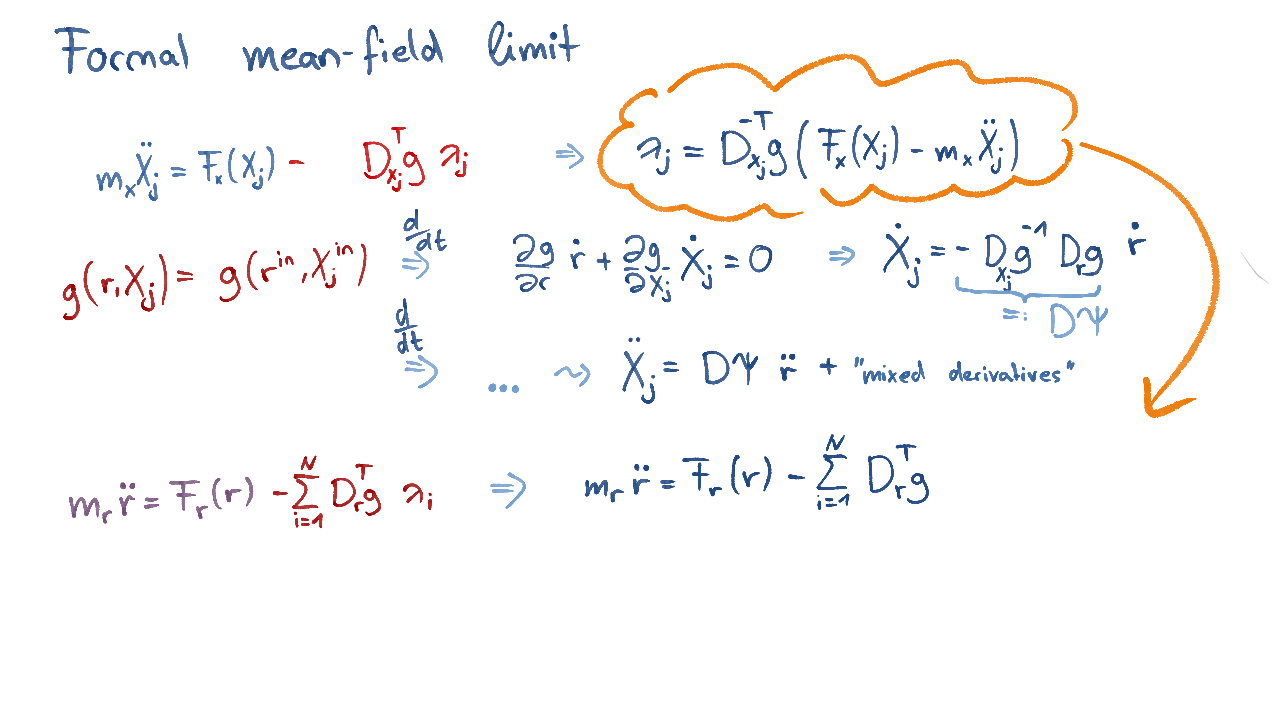 Formal mean-field limit
m_x Ẍ_j = F_x(X_j) - D_{x_j}^T g λ_j ⇒ λ_j = D_{x_j}^{-T} g ( F_x(X_j) - m_x Ẍ_j )
g(r, X_j) = g(r^{in}, X_j^{in}) d/dt ⇒ ∂g/∂r ṙ + ∂g/∂X_j Ẋ_j = 0 ⇒ Ẋ_j = - D_{x_j} g^{-1} D_r g ṙ
=: DΨ
d/dt ⇒ ... ⇝ Ẍ_j = DΨ r̈ + "mixed derivatives"
m_r r̈ = F_r(r) - ∑_{i=1}^N D_r^T g λ_i ⇒ m_r r̈ = F_r(r) - ∑_{i=1}^N D_r^T g